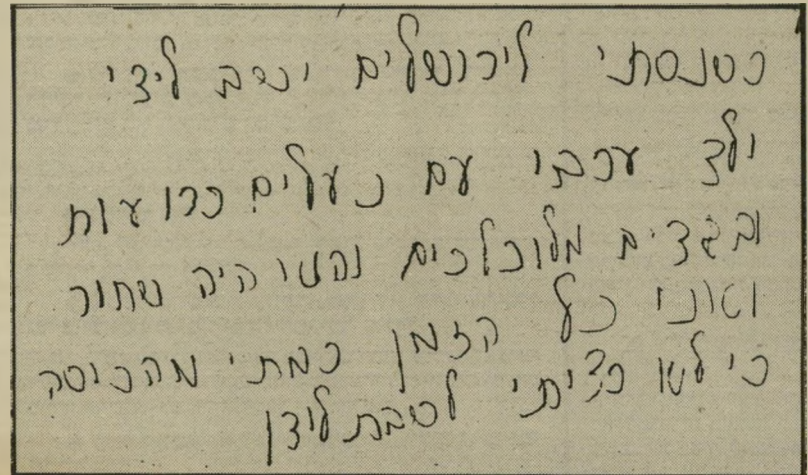 כשנסתי לירושלים ישב לידי
ילד ערבי עם נעלים כרועות
ובגדים מלוכלכים והא היה שחור
ואני כל הזמן כמתי מהכיסה
כי לא רציתי לשבת לידו